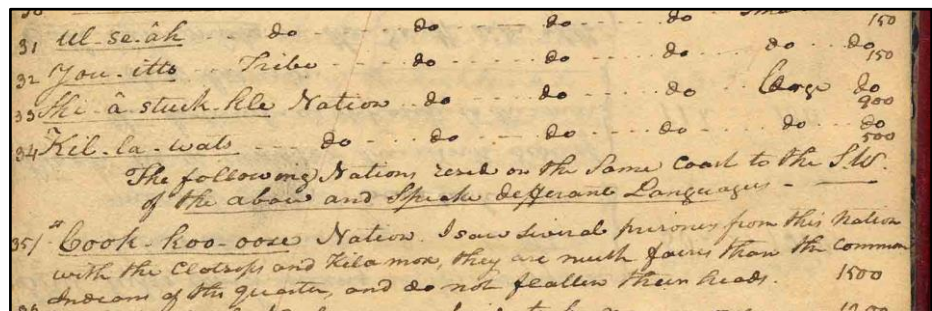 31 Ul-se-âh do do do do Small do 150
32 You-itts Tribe do do do do do 150
33 Shi-â-stuck-kle Nation do do do large do 900
34 Kil-la-wats do do do do do do 500
The following Nations resid on the Same Coast to the S.W.
of the above and Speake defferant Languages
35/ Cook-koo-oose Nation. I saw several prisoners from this Nation
with the Clatsops and Kilamox, they are much fairer than the common
Indians of this quarter, and do not flatten their heads. 1500